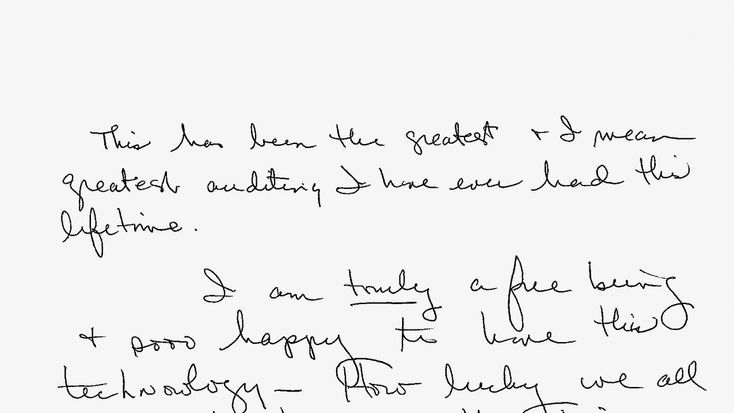 This has been the greatest + I mean
greatest auditing I have ever had this
lifetime.
I am truly a free being
+ sooo happy to have this
technology — How lucky we all